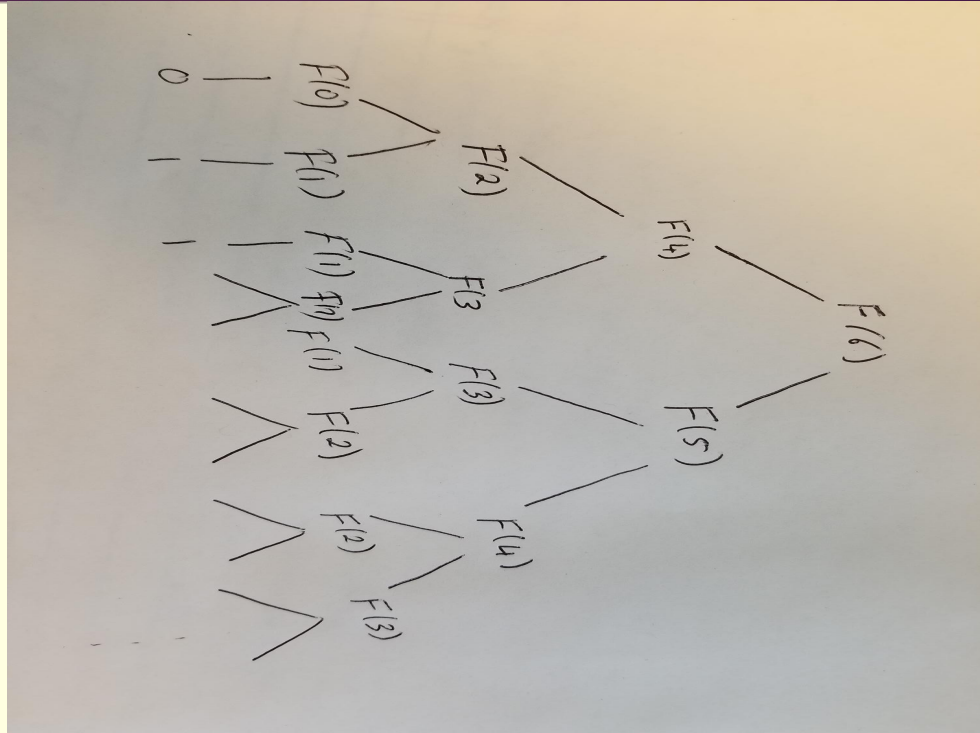 F(6)
F(4) F(5)
F(2) F(3 F(3) F(4)
F(0) F(1) F(1) F(1) F(2) F(2) F(3)
0 1 1 ...